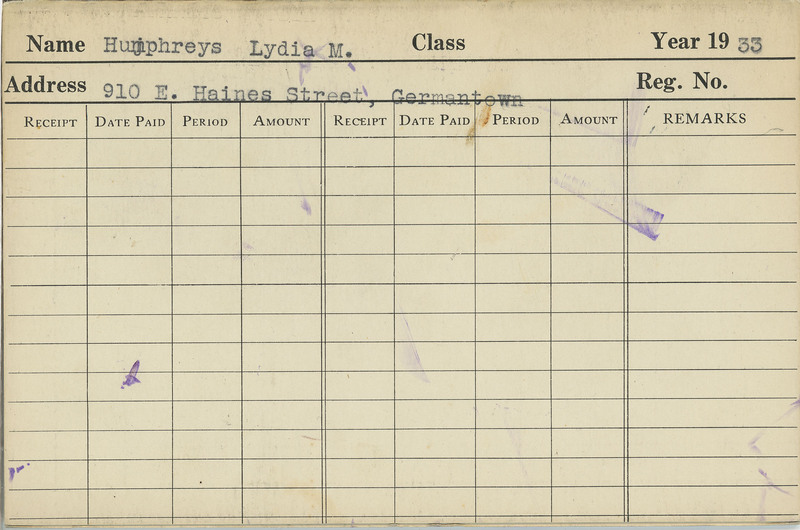 Name Humphreys Lydia M. Class Year 19 33
Address 910 E. Haines Street, Germantown Reg. No.
RECEIPT DATE PAID PERIOD AMOUNT RECEIPT DATE PAID PERIOD AMOUNT REMARKS